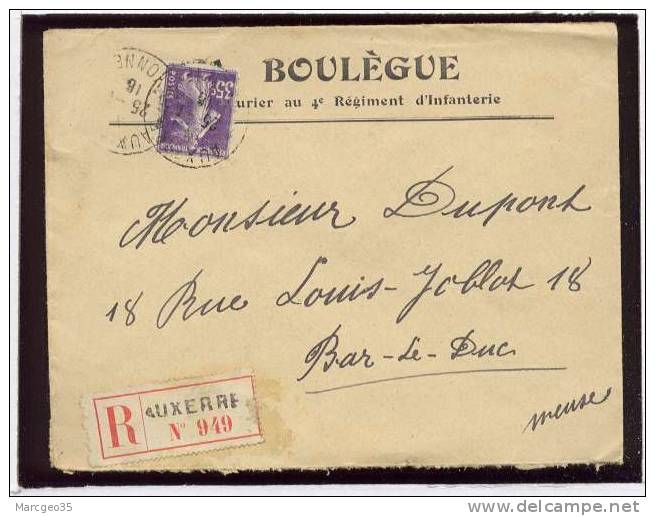 BOULÈGUE
urier au 4e Régiment d'Infanterie
35c
POSTES
Monsieur Dupont
18 Rue Louis-Joblot 18
Bar-le-Duc
meuse
R AUXERRE
No 949
Marcgeo35
www.delcampe.net